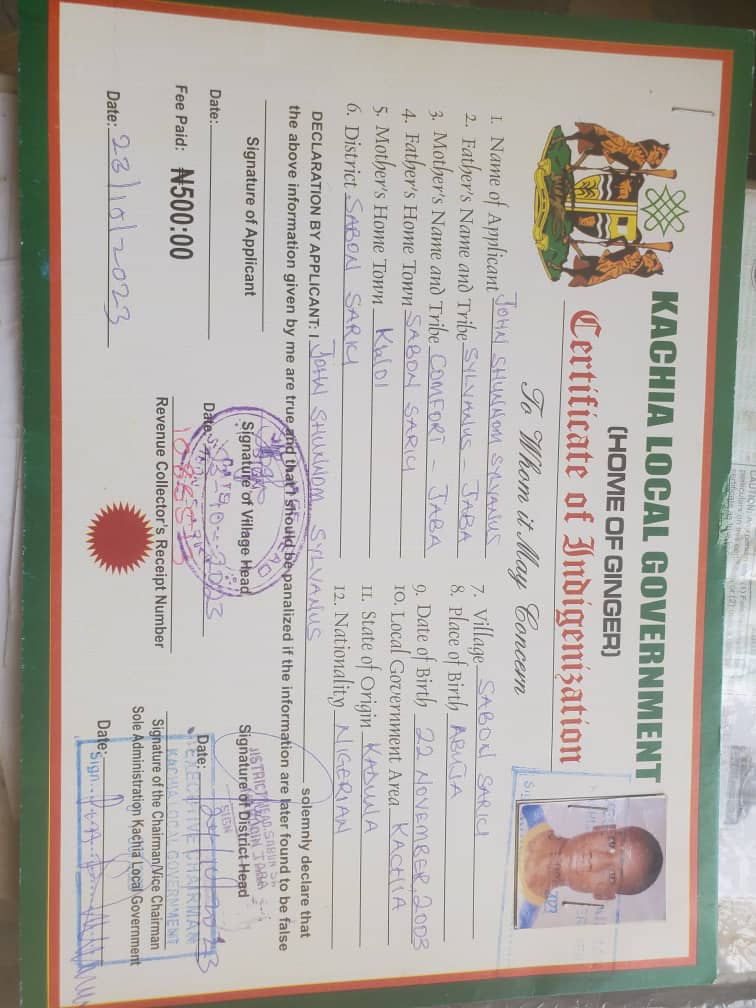 KACHIA LOCAL GOVERNMENT
(HOME OF GINGER)
Certificate of Indigenization
To Whom it May Concern
1. Name of Applicant JOHN SHUNNOM SYLVANUS
2. Father's Name and Tribe SYLVANUS - JABA
3. Mother's Name and Tribe COMFORT - JABA
4. Father's Home Town SABON SARKI
5. Mother's Home Town KWOI
6. District SABON SARKI
7. Village SABON SARKI
8. Place of Birth ABUJA
9. Date of Birth 22 NOVEMBER, 2003
10. Local Government Area KACHIA
11. State of Origin KADUNA
12. Nationality NIGERIAN
DECLARATION BY APPLICANT: I JOHN SHUNNOM SYLVANUS solemnly declare that
the above information given by me are true and that I should be panalized if the information are later found to be false
Signature of Applicant
Date:
Signature of Village Head
Date:
DISTRICT HEAD SABON
SIGN
Signature of District Head
Date: 24/10/2023
Fee Paid: ₦500:00
Revenue Collector's Receipt Number
EXECUTIVE CHAIRMAN
KACHIA LOCAL GOVERNMENT
Signature of the Chairman/Vice Chairman
Sole Administration Kachia Local Government
Date: 23/10/2023
Date:
Sign